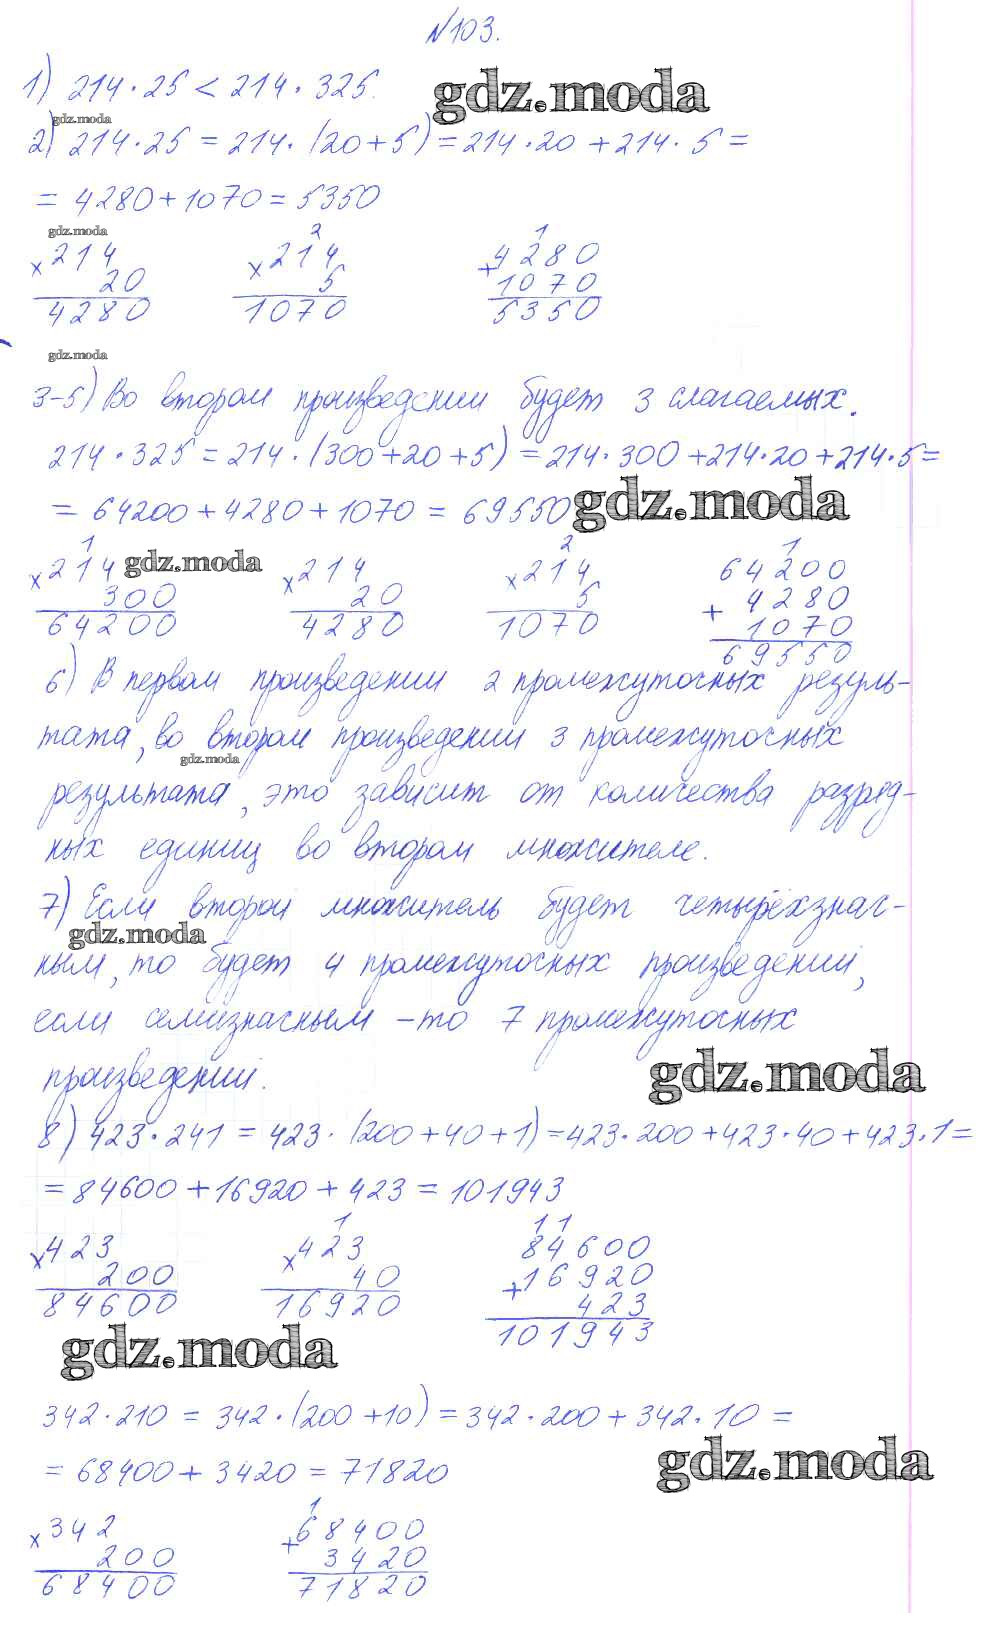 №103.
1) 214·25 < 214·325.
gdz.moda
gdz.moda
2) 214·25 = 214·(20+5) = 214·20 + 214·5 =
= 4280 + 1070 = 5350
gdz.moda
2 1
×214 ×214 4280
20 5 +1070
4280 1070 5350
gdz.moda
3-5) Во втором произведении будет 3 слагаемых.
214·325 = 214·(300+20+5) = 214·300 + 214·20 + 214·5 =
= 64200 + 4280 + 1070 = 69550
gdz.moda
1 2 1
×214 ×214 ×214 64200
gdz.moda
300 20 5 +4280
64200 4280 1070 1070
69550
6) В первом произведении 2 промежуточных резуль-
тата, во втором произведении 3 промежуточных
gdz.moda
результата, это зависит от количества разряд-
ных единиц во втором множителе.
7) Если второй множитель будет четырёхзнач-
gdz.moda
ным, то будет 4 промежуточных произведений,
если семизначным – то 7 промежуточных
произведений.
gdz.moda
8) 423·241 = 423·(200+40+1) = 423·200 + 423·40 + 423·1 =
= 84600 + 16920 + 423 = 101943
1 11
×423 ×423 84600
200 40 +16920
84600 16920 423
101943
gdz.moda
342·210 = 342·(200+10) = 342·200 + 342·10 =
= 68400 + 3420 = 71820
gdz.moda
1
×342 68400
200 +3420
68400 71820